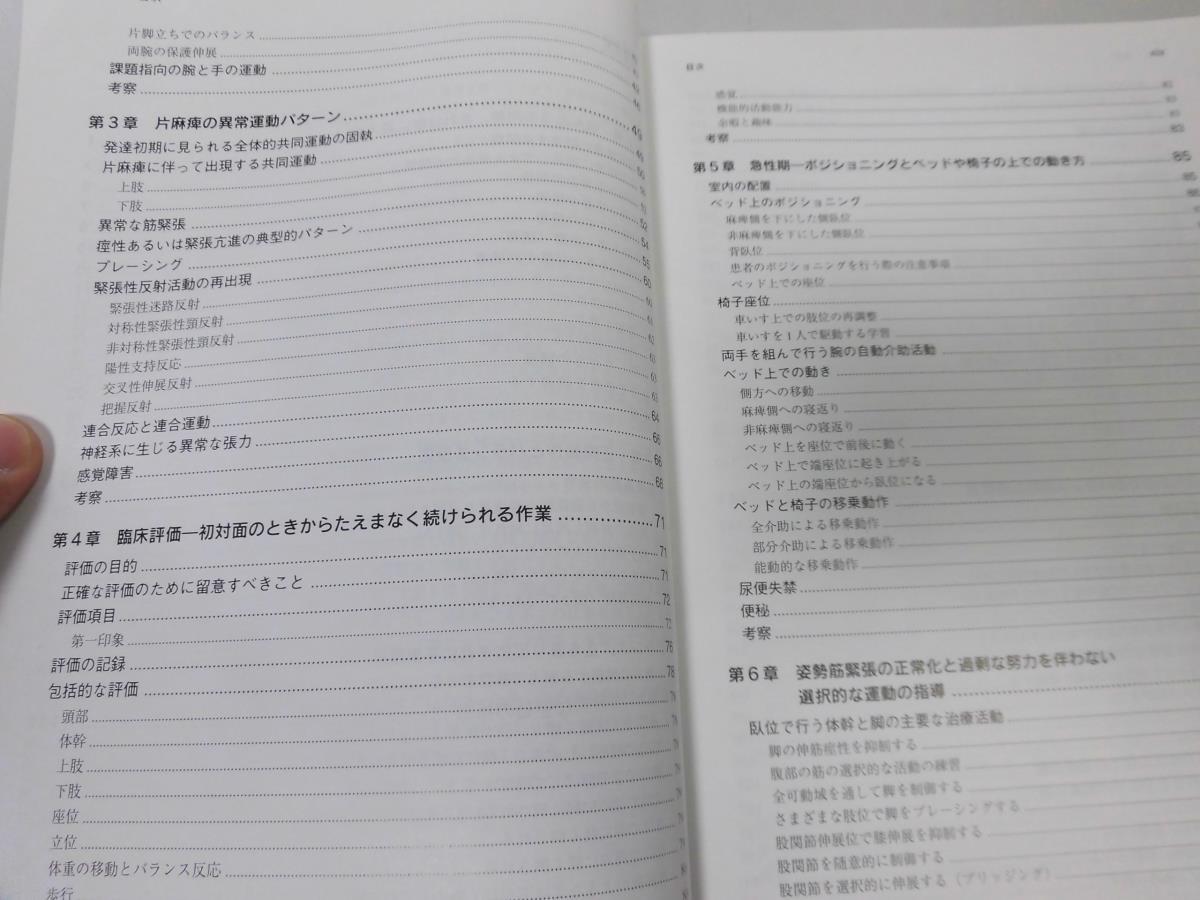 片脚立ちでのバランス
両腕の保護伸展
課題指向の腕と手の運動
考察
第3章 片麻痺の異常運動パターン 49
発達初期に見られる全体的共同運動の固執 49
片麻痺に伴って出現する共同運動 50
上肢
下肢 51
異常な筋緊張 52
痙性あるいは緊張亢進の典型的パターン 54
プレーシング 55
緊張性反射活動の再出現 60
緊張性迷路反射 60
対称性緊張性頸反射 61
非対称性緊張性頸反射 62
陽性支持反応 63
交叉性伸展反射 63
把握反射 63
連合反応と連合運動 64
神経系に生じる異常な張力 66
感覚障害 66
考察 68
第4章 臨床評価―初対面のときからたえまなく続けられる作業 71
評価の目的 71
正確な評価のために留意すべきこと 71
評価項目 72
第一印象 72
評価の記録 76
包括的な評価 78
頭部 79
体幹 79
上肢 79
下肢 79
座位 79
立位 79
体重の移動とバランス反応
歩行
目次
感覚
機能的活動能力
余暇と趣味
考察 83
第5章 急性期―ポジショニングとベッドや椅子の上での動き方 85
室内の配置 85
ベッド上のポジショニング
麻痺側を下にした側臥位
非麻痺側を下にした側臥位
背臥位
患者のポジショニングを行う際の注意事項
ベッド上での座位
椅子座位
車いす上での肢位の再調整
車いすを1人で駆動する学習
両手を組んで行う腕の自動介助活動
ベッド上での動き
側方への移動
麻痺側への寝返り
非麻痺側への寝返り
ベッド上を座位で前後に動く
ベッド上で端座位に起き上がる
ベッド上の端座位から臥位になる
ベッドと椅子の移乗動作
全介助による移乗動作
部分介助による移乗動作
能動的な移乗動作
尿便失禁
便秘
考察
第6章 姿勢筋緊張の正常化と過剰な努力を伴わない
選択的な運動の指導
臥位で行う体幹と脚の主要な治療活動
脚の伸筋痙性を抑制する
腹部の筋の選択的な活動の練習
全可動域を通して脚を制御する
さまざまな肢位で脚をプレーシングする
股関節伸展位で膝伸展を抑制する
股関節を随意的に制御する
股関節を選択的に伸展する（ブリッジング）